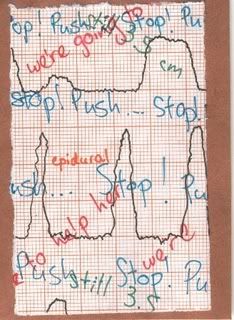 op! Push Stop! Pu
we're going
3.5
cm
Stop! Push... Stop!
epidural
ush... Stop! Pu
to help her
we're
Push still Stop! Pu